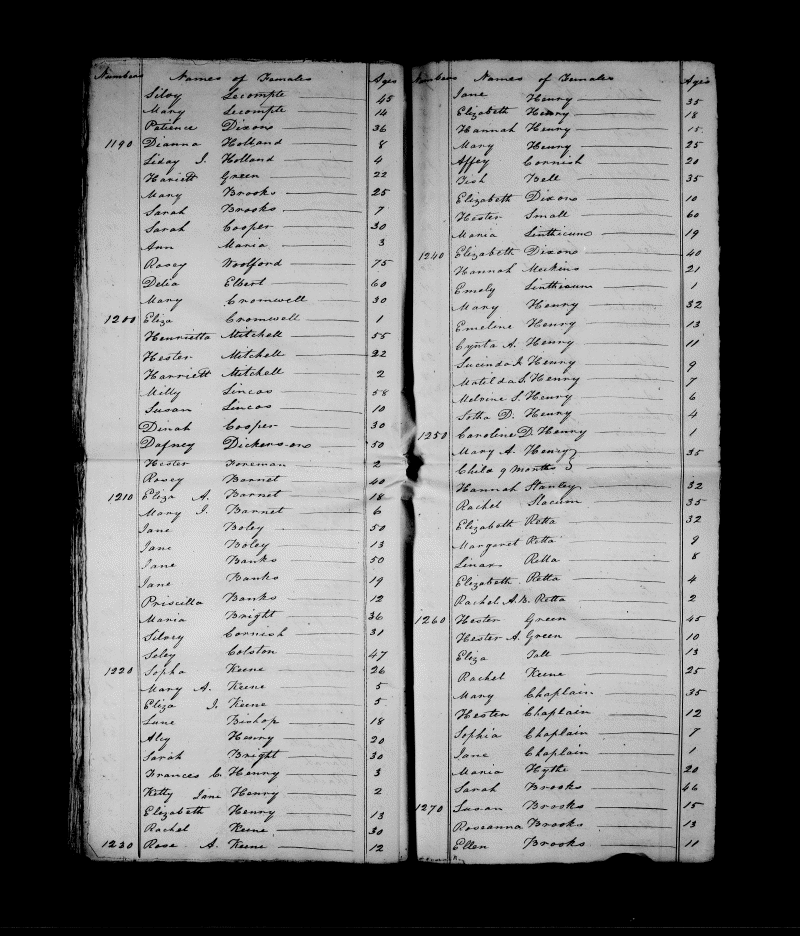 Numbers Names of Females Ages
Silvy Lecompte 45
Mary Lecompte 14
Patience Dixons 36
1190 Dianna Holland 8
Liday J. Holland 4
Hariett Green 22
Mary Brooks 25
Sarah Brooks 7
Sarah Cooper 30
Ann Maria 3
Rosey Woolford 75
Delia Elbert 60
Mary Cromwell 30
1200 Eliza Cromwell 1
Henrietta Mitchell 55
Hester Mitchell 32
Harriett Mitchell 2
Milly Lincos 58
Susan Lincos 10
Dinah Cooper 30
Dafney Dickersons 50
Hester Foreman 2
Rosey Barnet 40
1210 Eliza A. Barnet 18
Mary J. Barnet 6
Jane Boley 50
Jane Boley 13
Jane Banks 50
Jane Banks 19
Priscilla Banks 12
Maria Bright 36
Silvey Cornish 31
Seley Colston 47
1220 Sopha Keene 26
Mary A. Keene 5
Eliza J. Keene 5
Lune Bishop 18
Aley Henry 20
Sarah Bright 30
Frances C. Henry 3
Kitty Jane Henry 2
Elizabeth Henry 13
Rachel Keene 30
1230 Rose A. Keene 12
Numbers Names of Females Ages
Jane Henry 35
Elizabeth Henry 18
Hannah Henry 15
Mary Henry 25
Affey Cornish 20
Tish Bell 35
Elizabeth Dixons 10
Hester Small 60
Maria Linthicum 19
1240 Elizabeth Dixons 40
Hannah Meekins 21
Emely Linthicum 1
Mary Henry 32
Emeline Henry 13
Cynta A. Henry 11
Lucinda J. Henry 9
Matilda S. Henry 7
Melvine S. Henry 6
Sotha D. Henry 4
1250 Caroline D. Henry 1
Mary A. Henry 35
Child 9 months
Hannah Stanley 32
Rachel Slacum 35
Elizabeth Retta 32
Margaret Retta 9
Linars Retta 8
Elizabeth Retta 4
Rachel A.B. Retta 2
1260 Hester Green 45
Hester A. Green 10
Eliza Tall 13
Rachel Keene 25
Mary Chaplain 35
Hester Chaplain 12
Sophia Chaplain 7
Jane Chaplain 1
Maria Hythe 20
Sarah Brooks 46
1270 Susan Brooks 15
Roseanna Brooks 13
Ellen Brooks 11